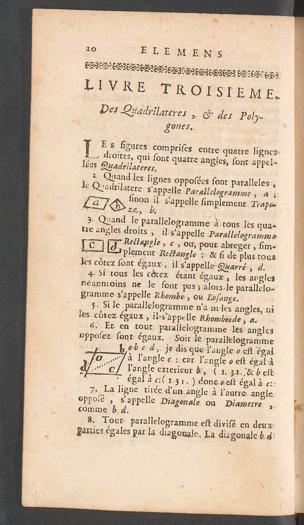 20 ELEMENS
LIVRE TROISIEME.
Des Quadrilateres, & des Poly-
gones.
LEs figures comprises entre quatre lignes
droites, qui sont quatre angles, sont appel-
lées Quadrilateres.
2 Quand les lignes opposées sont paralleles,
le Quadrilatere s'appelle Parallelogramme, a;
a b sinon il s'appelle simplement Trape-
ze, b,
3. Quand le parallelogramme à tous les qua-
tre angles droits, il s'appelle Parallelogramme
c d Rectangle, c, ou, pour abreger, sim-
plement Rectangle: & si de plus tous
les côtez sont égaux, il s'appelle Quarré, d.
4 Si tous les côtez étant égaux, les angles
néanmoins ne le sont pas; alors le parallelo-
gramme s'appelle Rhombe, ou Lozange.
5. Si le parallelogramme n'a ni les angles, ni
les côtez égaux, il s'appelle Rhomboide, a.
6. Et en tout parallelogramme les angles
opposez sont égaux. Soit le parallelogramme
b o b c d, je dis que l'angle o est égal
o à l'angle c: car l'angle o est égal à
d c l'angle exterieur b, (1.31.) & b est
égal à c: (1.31.) donc o est égal à c:
7. La ligne tirée d'un angle à l'autre angle
opposé, s'appelle Diagonale ou Diametre,
comme b d.
8. Tout parallelogramme est divisé en deux
parties égales par la diagonale. La diagonale b d